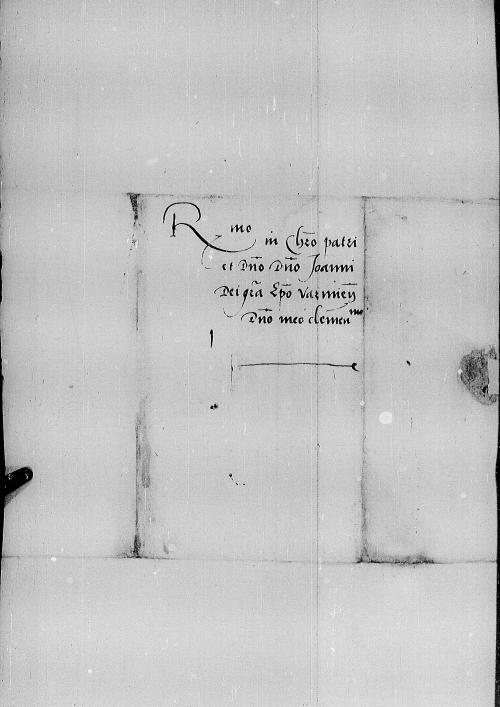 Rmo
in Chro patri
et Dno Dno Joanni
Dei gra Epo Varmien
Dno meo clemenmo